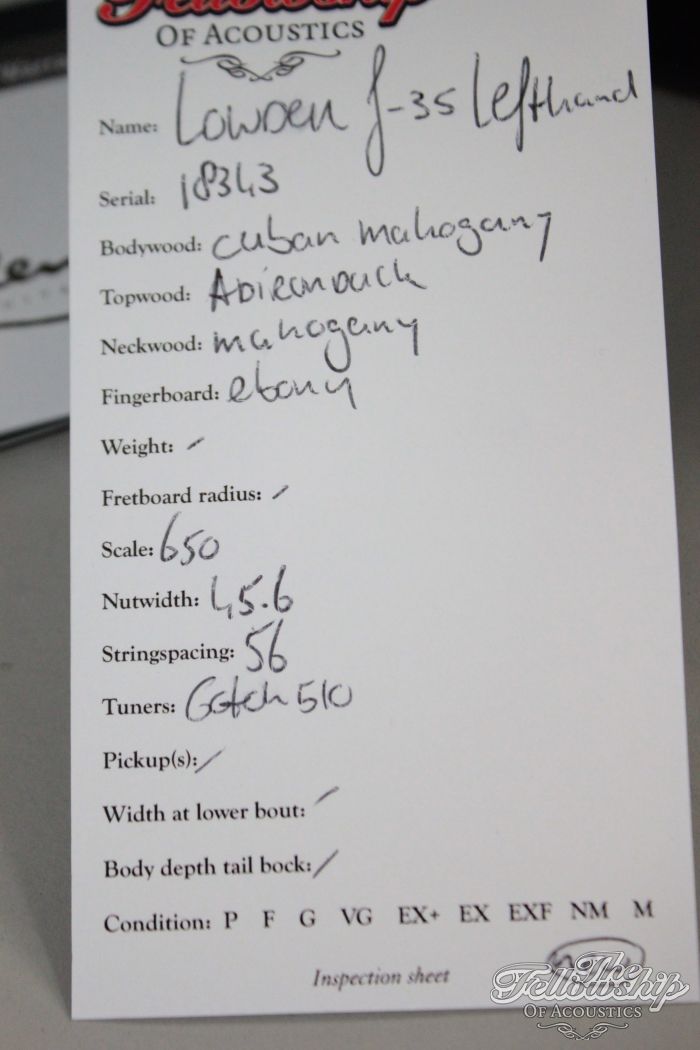 Fellowship
OF ACOUSTICS
Name: Lowden f-35 Lefthand
Serial: 18343
Bodywood: cuban mahogany
Topwood: Adirondack
Neckwood: mahogany
Fingerboard: ebony
Weight: /
Fretboard radius: /
Scale: 650
Nutwidth: 45.6
Stringspacing: 56
Tuners: Gotoh 510
Pickup(s): /
Width at lower bout: /
Body depth tail bock: /
Condition: P F G VG EX+ EX EXF NM M
Inspection sheet
The
Fellowship
OF ACOUSTICS